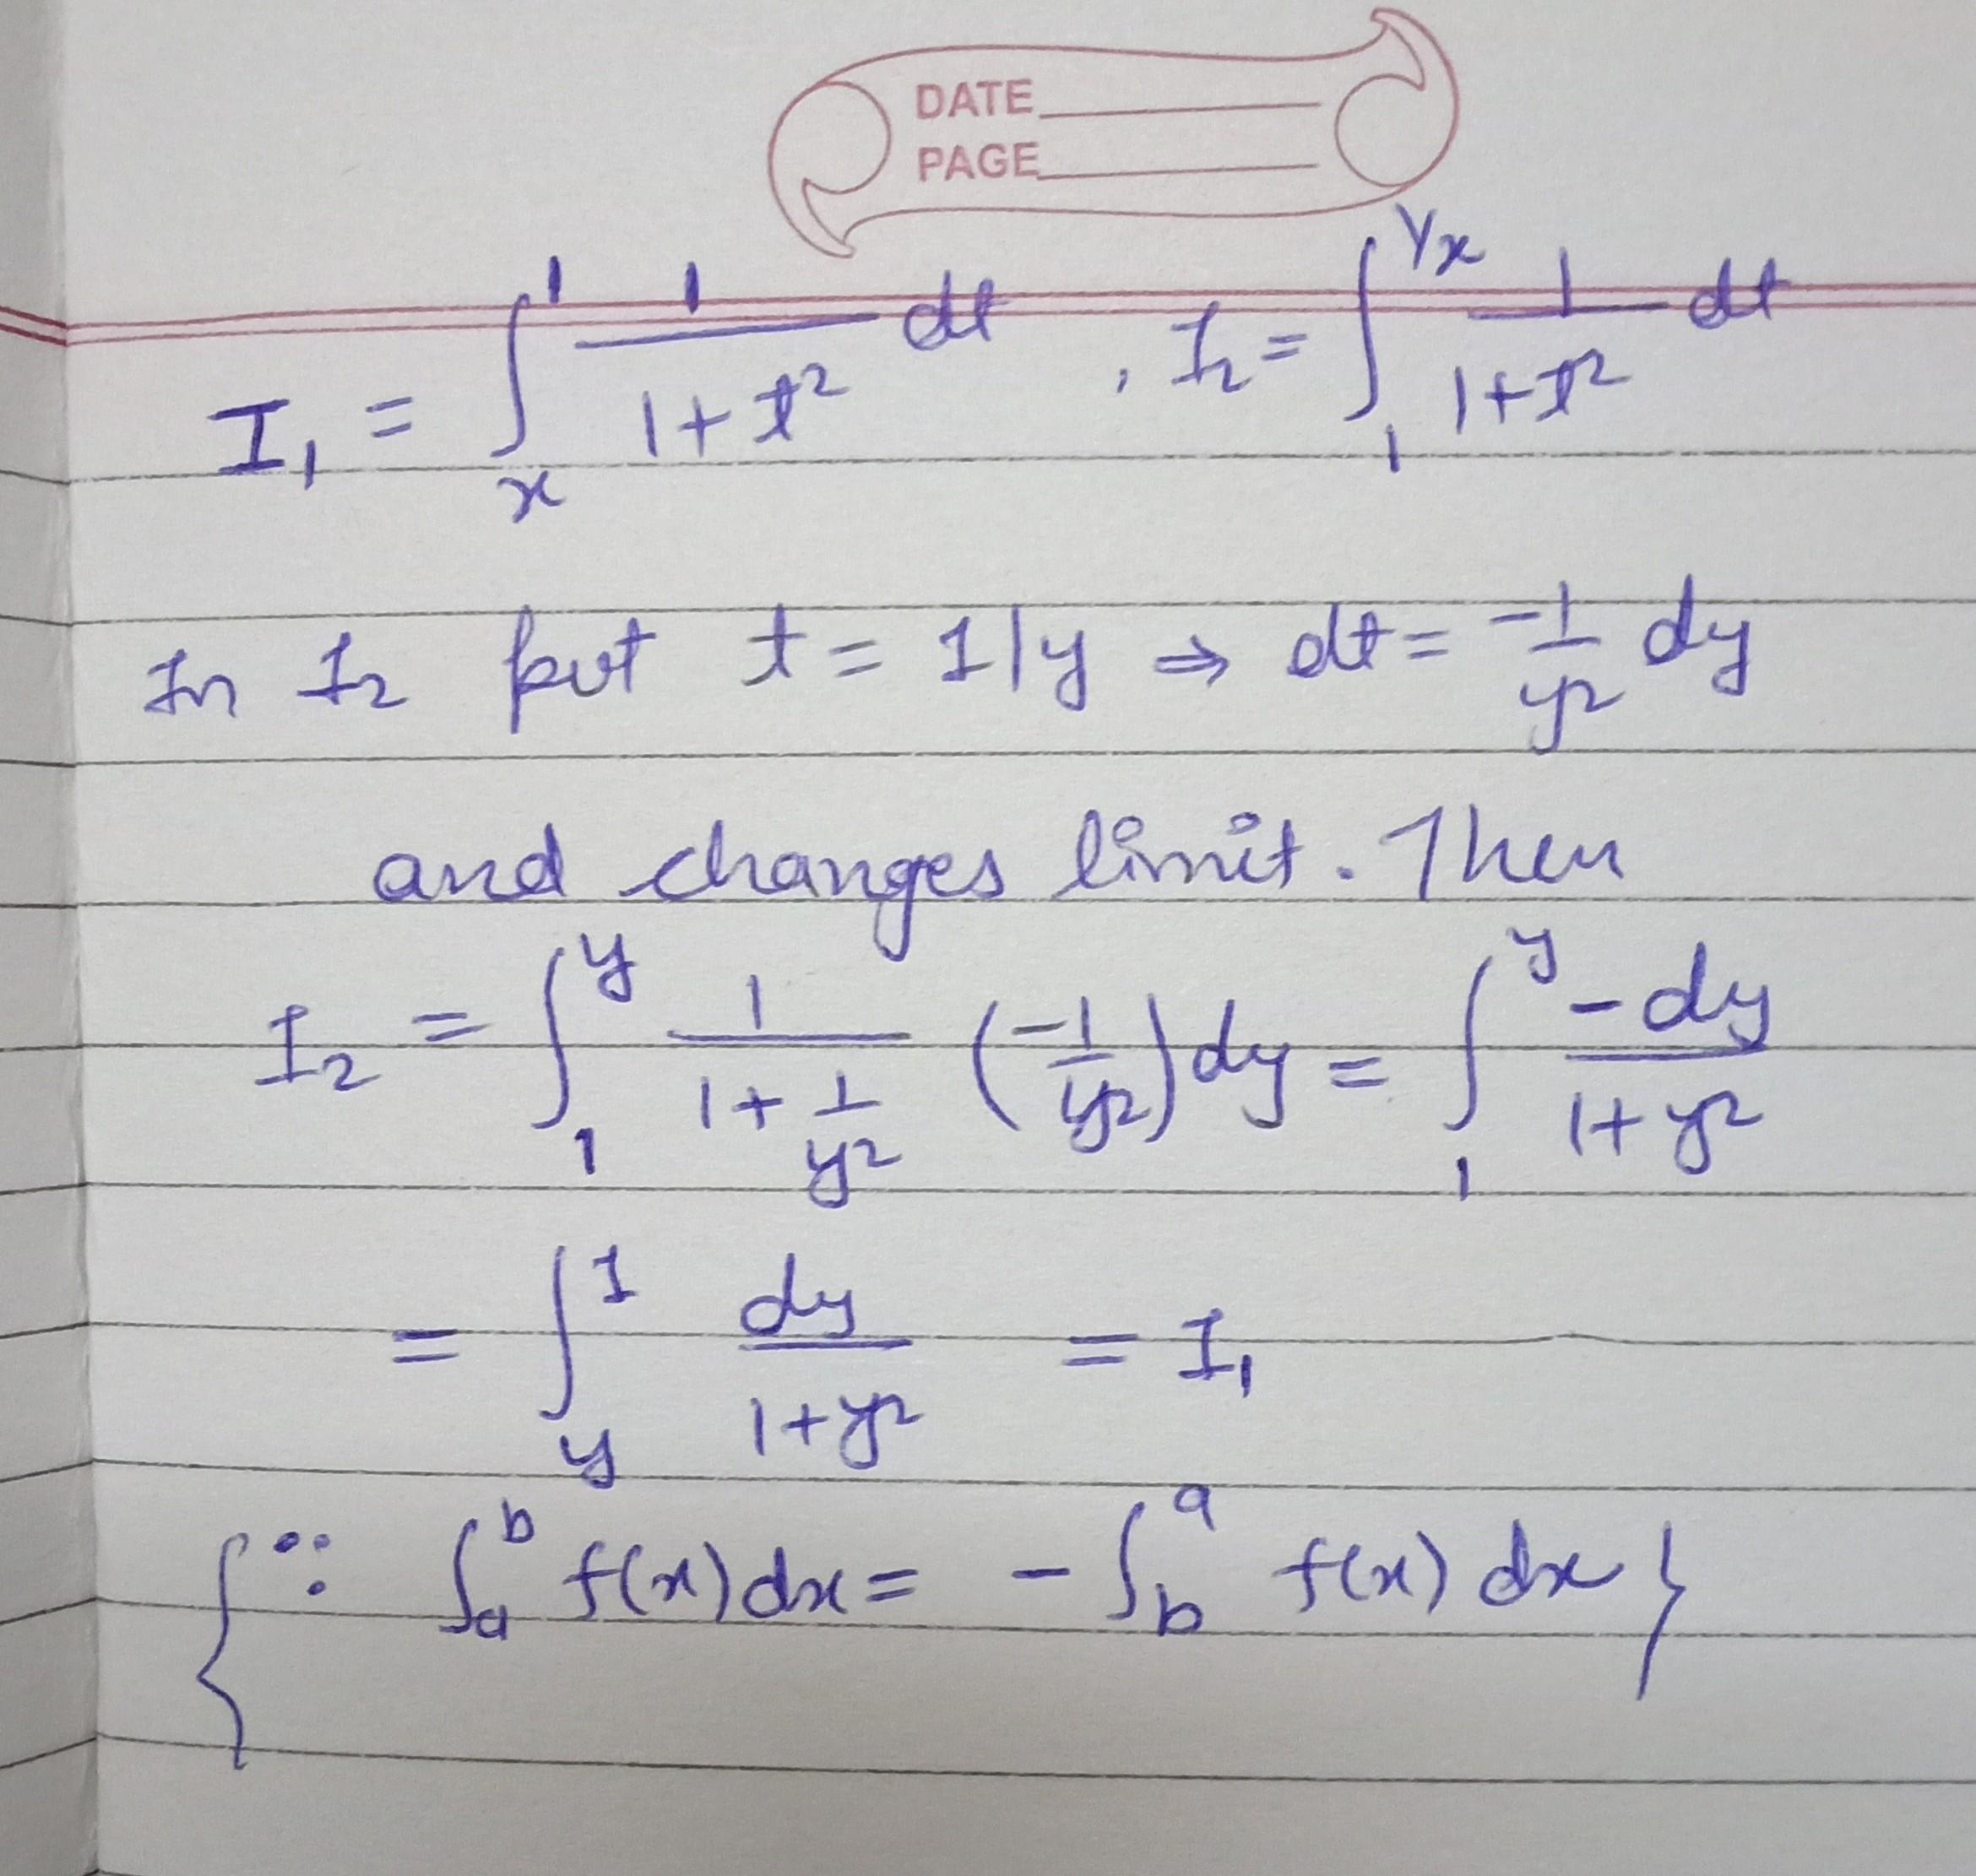 DATE
PAGE
I₁ = ∫ₓ¹ 1/(1+t²) dt , I₂ = ∫₁^(1/x) 1/(1+t²) dt
In I₂ put t = 1/y ⇒ dt = -1/y² dy
and changes limit. Then
I₂ = ∫₁^y 1/(1+1/y²) (-1/y²) dy = ∫₁^y -dy/(1+y²)
= ∫_y^1 dy/(1+y²) = I₁
{∵ ∫ₐᵇ f(x) dx = - ∫_b^a f(x) dx}